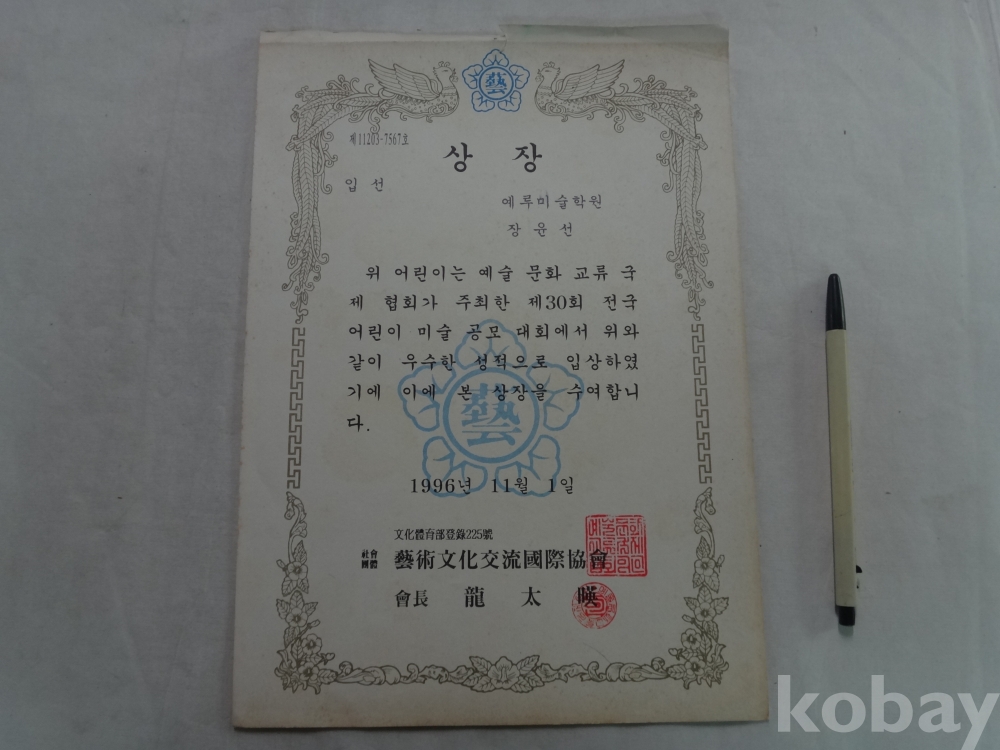 藝
제11203-7567호
상 장
입 선
예루미술학원
장 윤 선
위 어린이는 예술 문화 교류 국
제 협회가 주최한 제30회 전국
어린이 미술 공모 대회에서 위와
같이 우수한 성적으로 입상하였
기에 이에 본 상장을 수여합니
다.
藝
1996년 11월 1일
文化體育部登錄225號
社會團體 藝術文化交流國際協會
會長 龍 太 暎
kobay